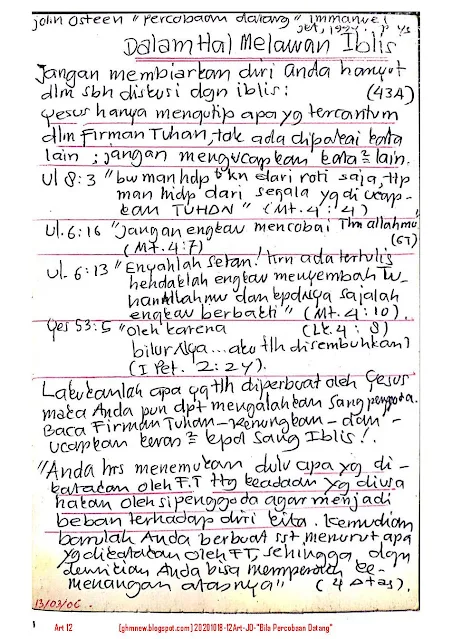 john Osteen "percobaan datang" Immanuel
Jkt, 1994. p 45
Dalam Hal Melawan Iblis
Jangan membiarkan diri Anda hanyut
dlm sbh diskusi dgn iblis: (43A)
Yesus hanya mengutip apa yg tercantum
dlm Firman Tuhan, tak ada dipakai kata
lain ; jangan mengucapkan kata² lain.
Ul 8:3 "bw man hdp b'kn dari roti saja, ttp
man hidp dari segala yg di ucap-
kan TUHAN" (Mt. 4:4)
Ul. 6:16 "Jangan engkau mencobai Thn allahmu,
(Mt. 4:7) (6T)
Ul. 6:13 "Enyahlah setan! krn ada tertulis
hendaklah engkau menyembah Tu-
hanAllahmu dan kpdNya sajalah
engkau berbakti" (Mt. 4:10).
Yes 53:5 "oleh karena (Lk. 4:8)
bilur Nya... aku tlh disembuhkan)
(I Pet. 2:24).
Lakukanlah apa yg tlh diperbuat oleh Yesus
maka Anda pun dpt mengalahkan Sang penggoda.
Baca Firman Tuhan - Renungkan - dan -
ucapkan keras² kpd Sang Iblis!.
"Anda hrs menemukan dulu apa yg di-
katakan oleh F.T ttg keadaan yg diusa
hakan oleh si penggoda agar menjadi
beban terhadap diri kita. Kemudian
barulah Anda berbuat sst menurut apa
yg dikatakan oleh FT, sehingga dgn
demikian Anda bisa memperoleh ke-
menangan atasnya" (4 Atas).
13/03/06.
Art 12 (ghmnew.blogspot.com) 20201018-12Art-JO-"Bila Percobaan Datang"